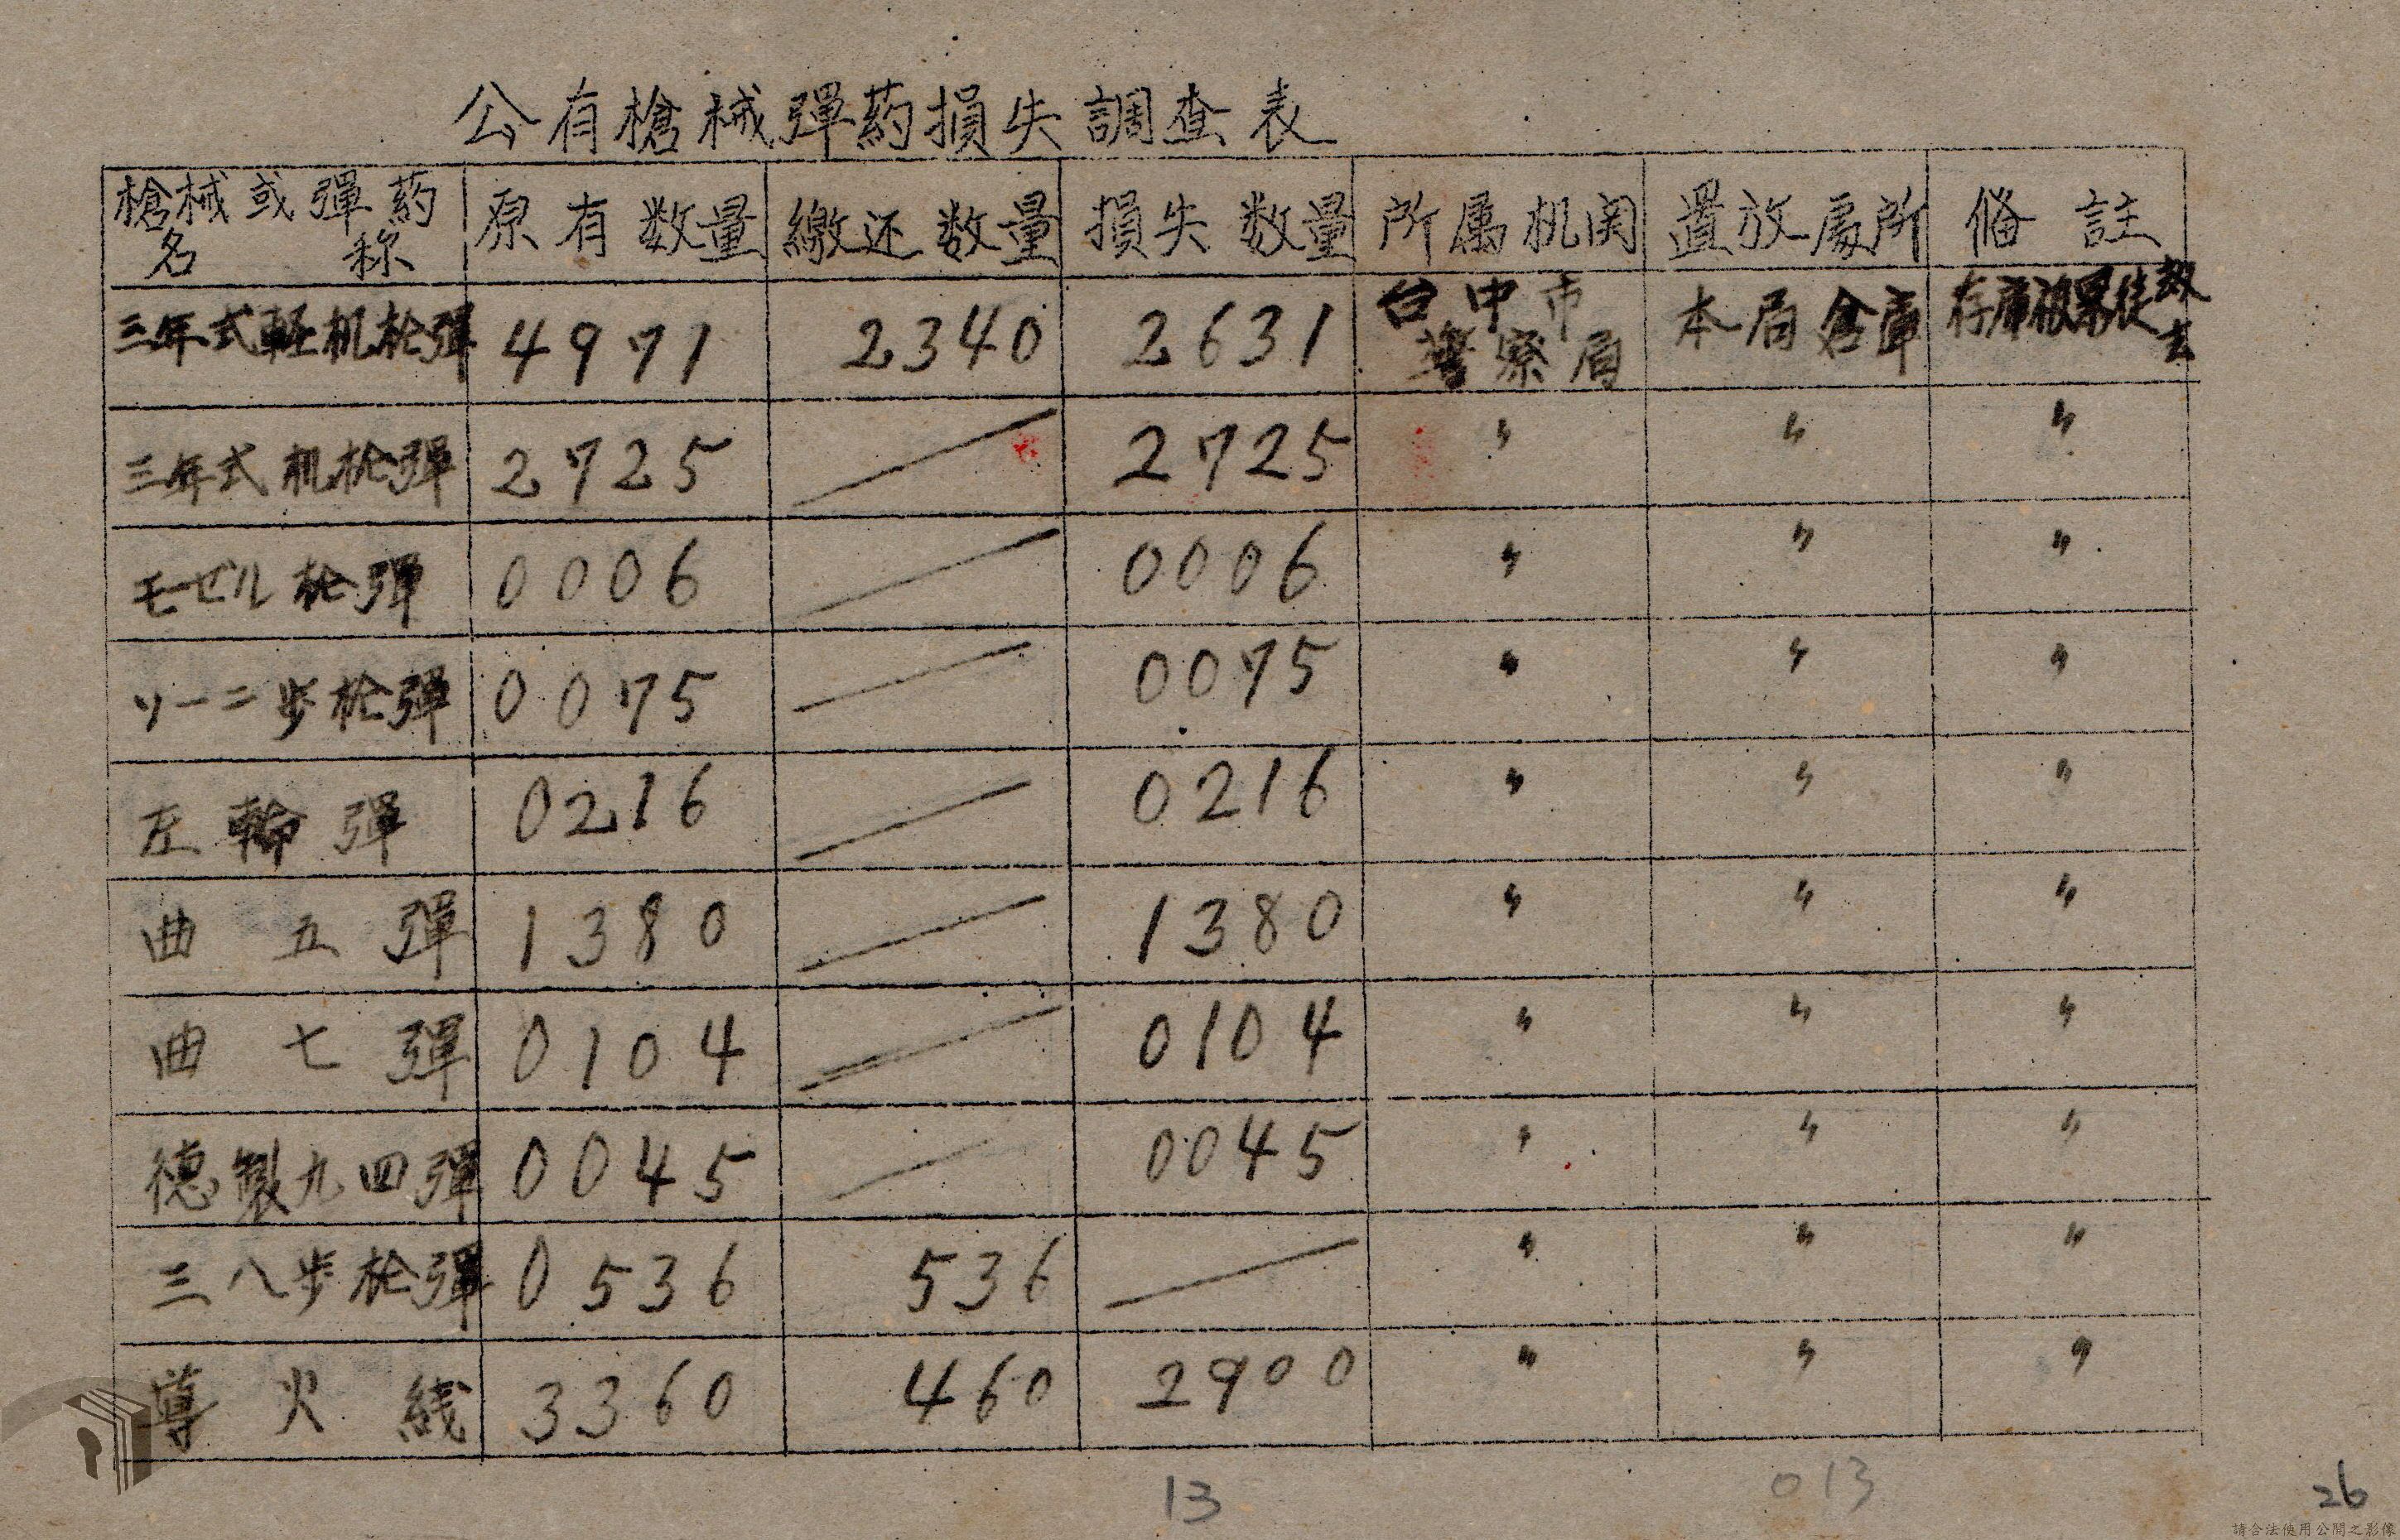 公有槍械彈葯損失調查表
槍械或彈葯名称 原有数量 繳还数量 損失数量 所属机関 置放處所 俻註
三年式軽机枪彈 4971 2340 2631 台中市警察局 本局倉庫 存庫被暴徒刼去
三年式机枪彈 2725 2725 〃 〃 〃
モーゼル枪彈 0006 0006 〃 〃 〃
ソーニ步枪彈 0075 0075 〃 〃 〃
左輪彈 0216 0216 〃 〃 〃
曲五彈 1380 1380 〃 〃 〃
曲七彈 0104 0104 〃 〃 〃
德製九四彈 0045 0045 〃 〃 〃
三八步枪彈 0536 536 〃 〃 〃
導火綫 3360 460 2900 〃 〃 〃
13
013
26
請合法使用公開之影像